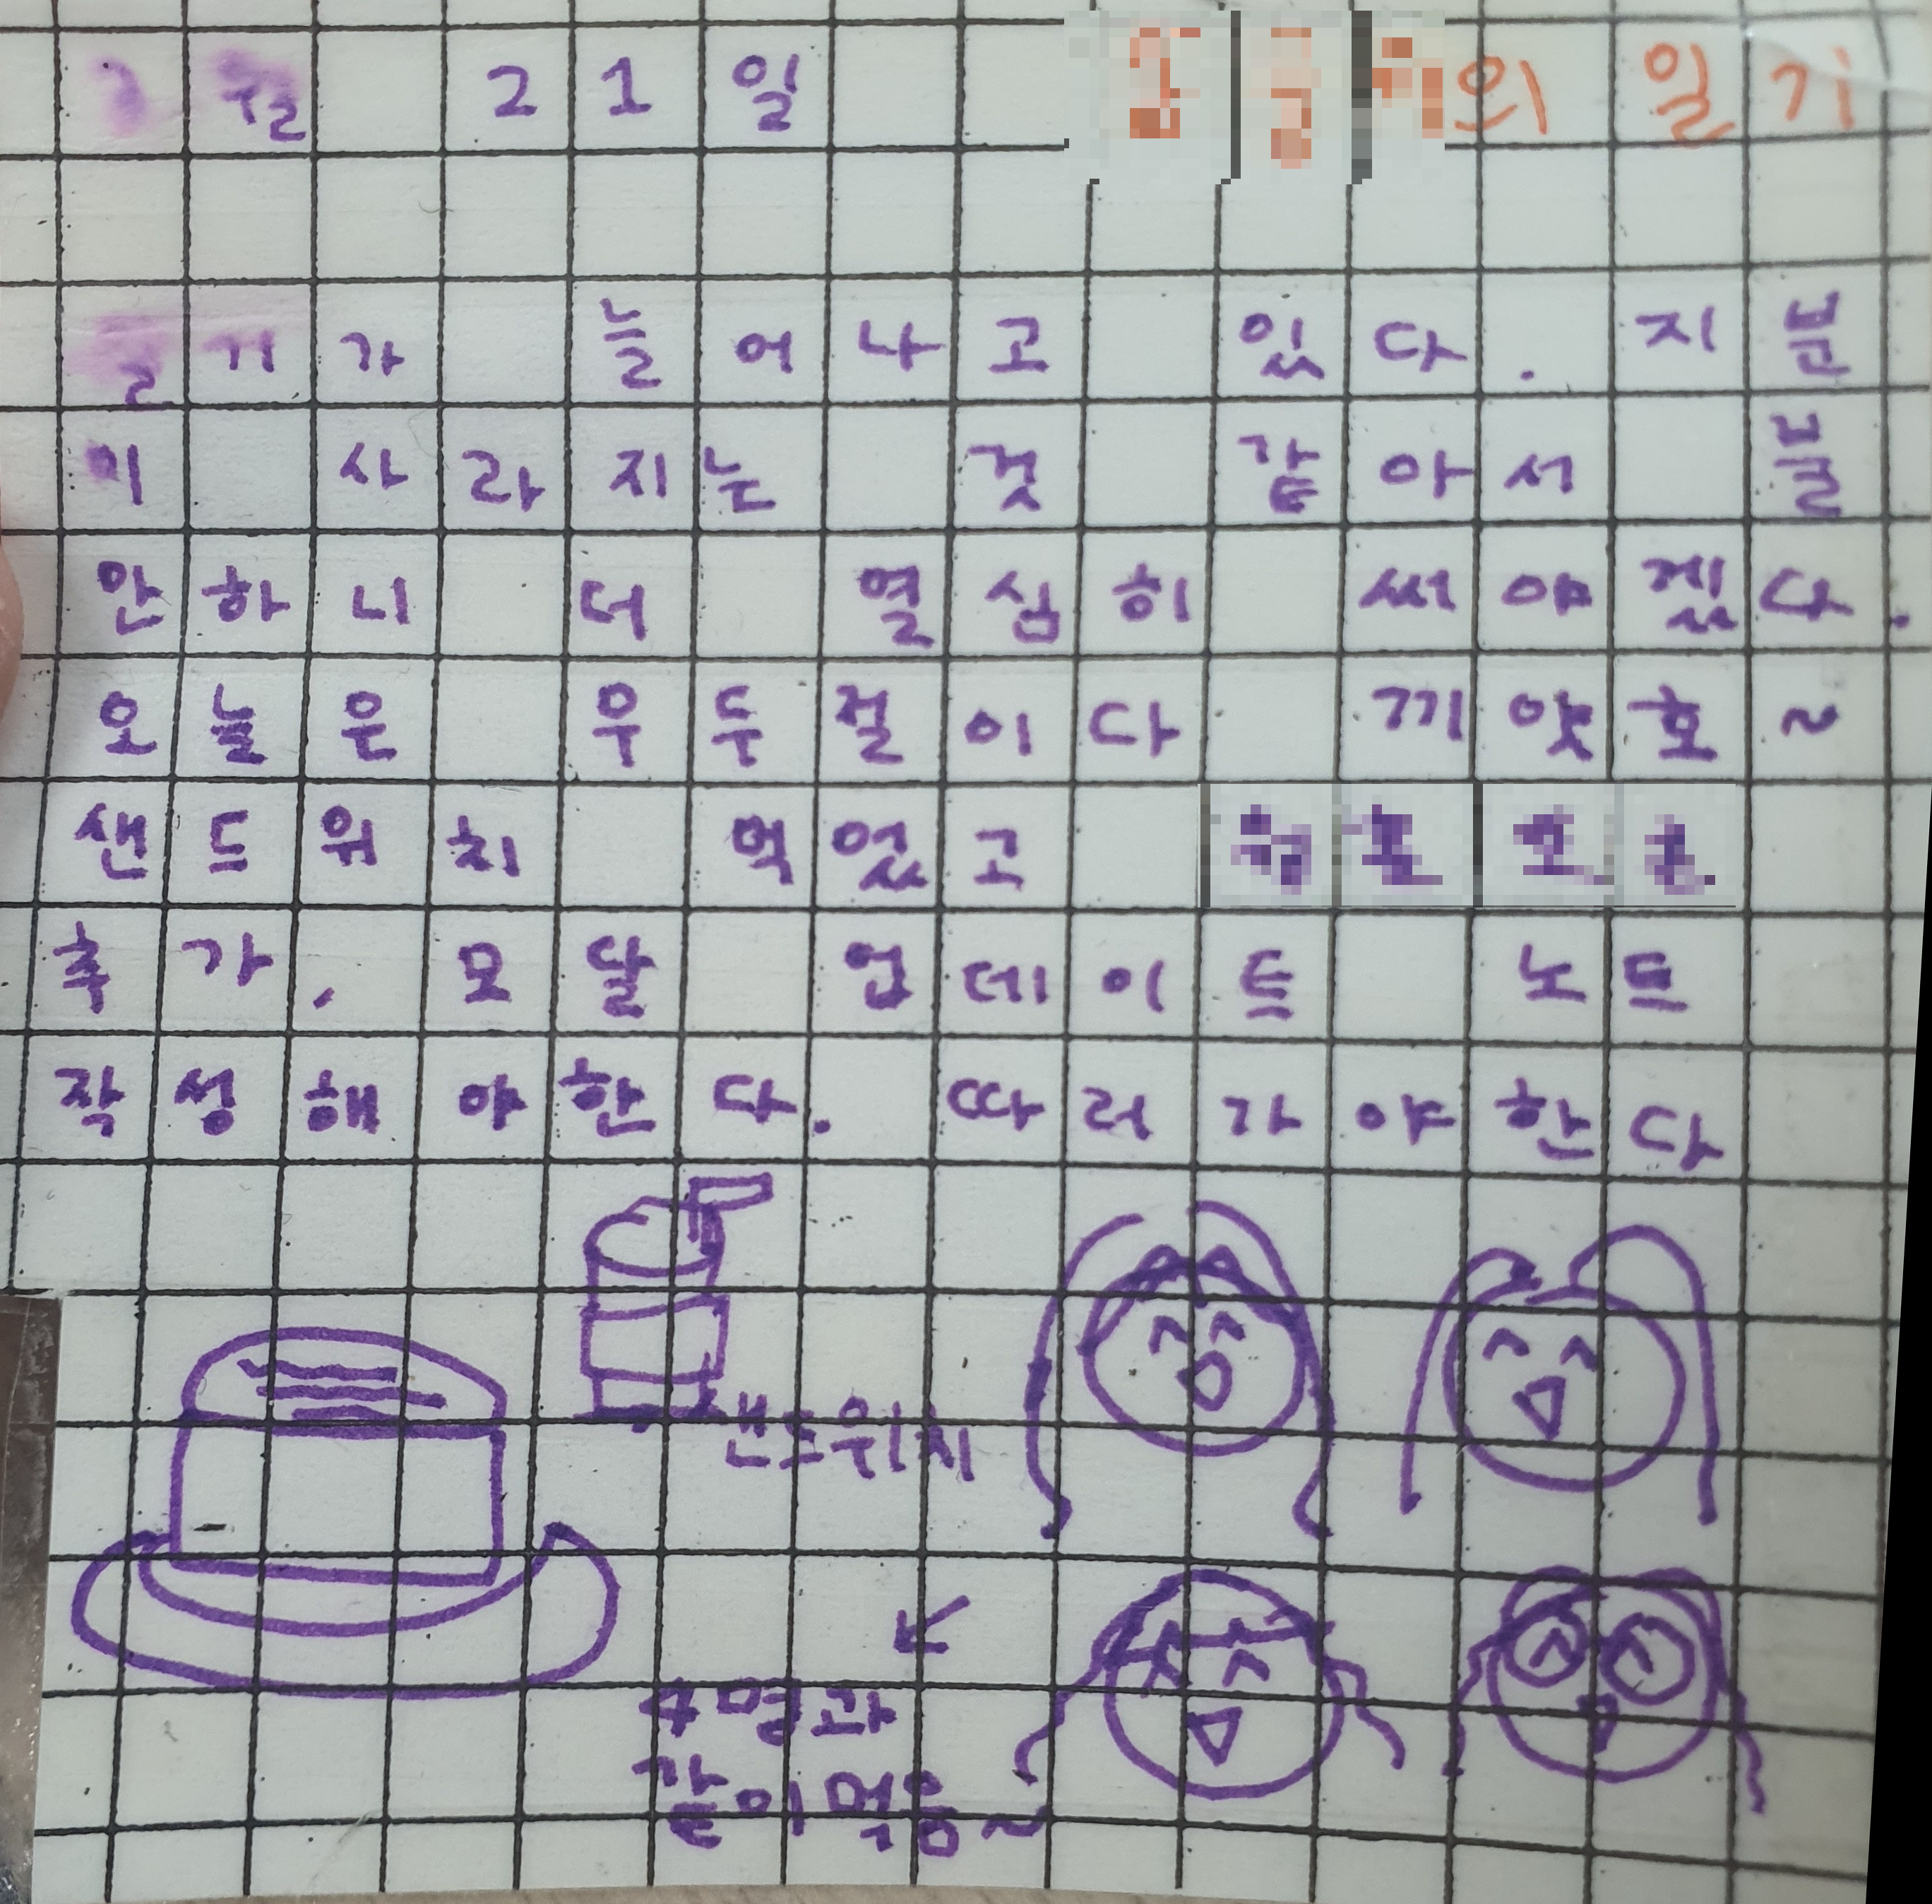 월 21일 의 일기
일기가 늘어나고 있다. 지분
이 사라지는 것 같아서 불
안하니 더 열심히 써야겠다.
오늘은 우두절이다 끼얏호~
샌드위치 먹었고
추가, 모달 업데이트 노트
작성해야한다. 따러가야한다
샌드위치
4명과
같이먹음~